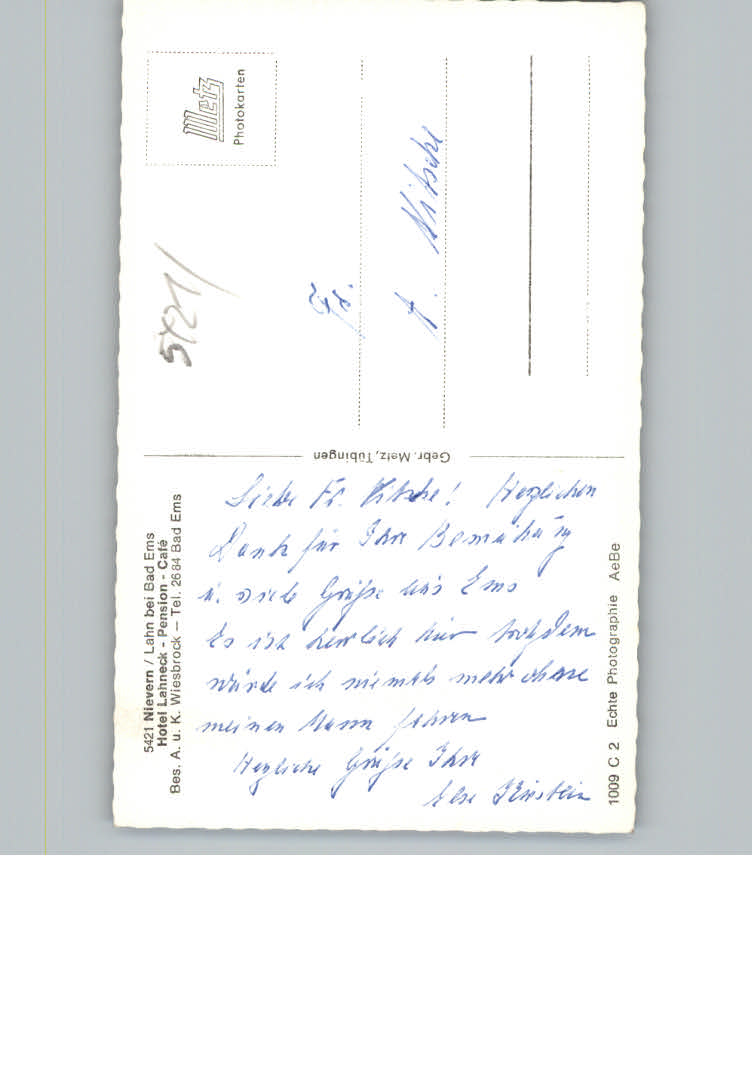 5421 Nievern / Lahn bei Bad Ems
Hotel Lahneck - Pension - Café
Bes. A. u. K. Wiesbrock — Tel. 2684 Bad Ems
Liebe Fr. Nitsche! Herzlichen
Dank für Ihre Bemühung
u. viele Grüße aus Ems
Es ist herrlich hier trotzdem
würde ich niemals mehr ohne
meinen Mann fahren
Herzliche Grüße Ihre
Else
1009 C 2 Echte Photographie AeBe
Gebr. Metz, Tübingen
Metz
Photokarten
5421
Fr.
A. Nitsche